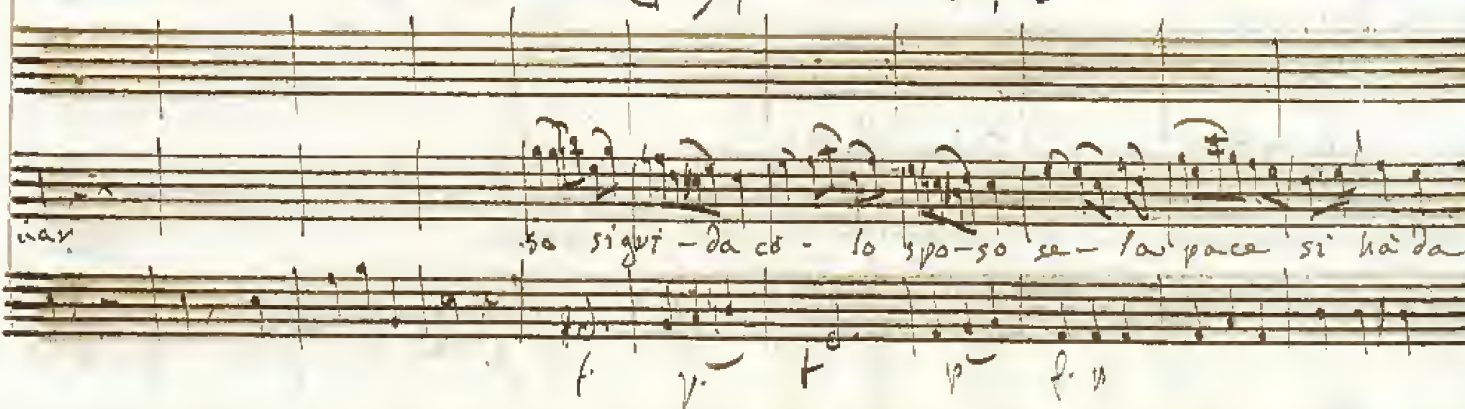 nar so si gui - da cō - lo spo - so se - la pace si hà da
f. p. f p f. p